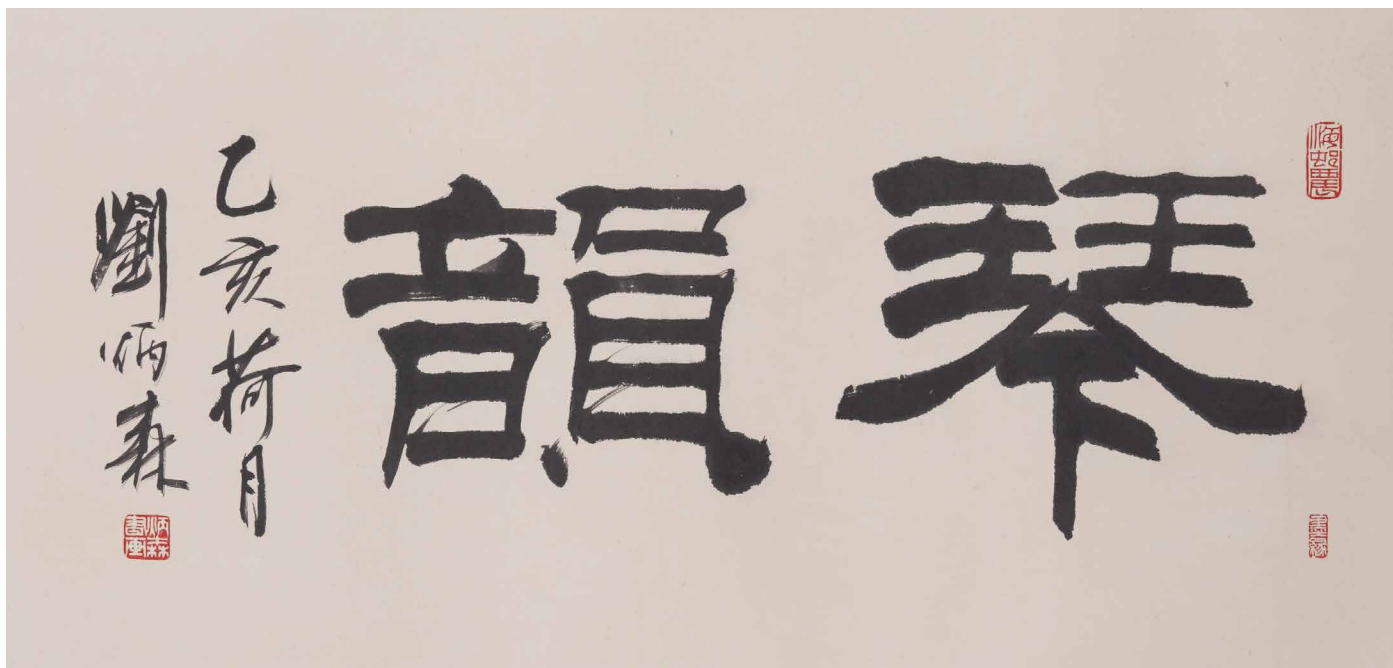 琴韻
乙亥荷月
劉炳森
炳森書画
墨緣